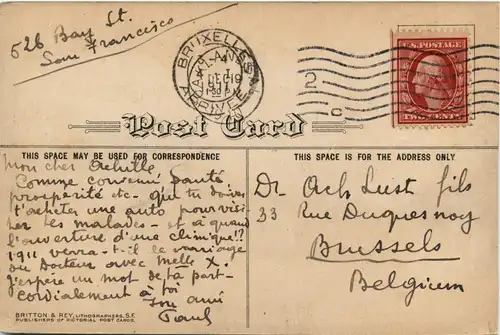 526 Bay St.
San Francisco
BRUXELLES
ARRIVÉE
OAKLAND
DEC 19
2
C
U.S. POSTAGE
TWO CENTS
Post Card
THIS SPACE MAY BE USED FOR CORRESPONDENCE
THIS SPACE IS FOR THE ADDRESS ONLY
Mon cher Achille
Comme convenu Santé
prospérité etc- que tu doives
t'acheter une auto pour visi-
ter tes malades - et à quand
l'ouverture d'une clinique!?
1911 verra-t-il le mariage
du Docteur avec Melle X.
j'espère un mot de ta part-
cordialement à toi
Ton ami
Paul
Dr Ach Lust fils
33 Rue Duquesnoy
Brussels
Belgium
BRITTON & REY, LITHOGRAPHERS, S.F.
PUBLISHERS OF PICTORIAL POST CARDS.